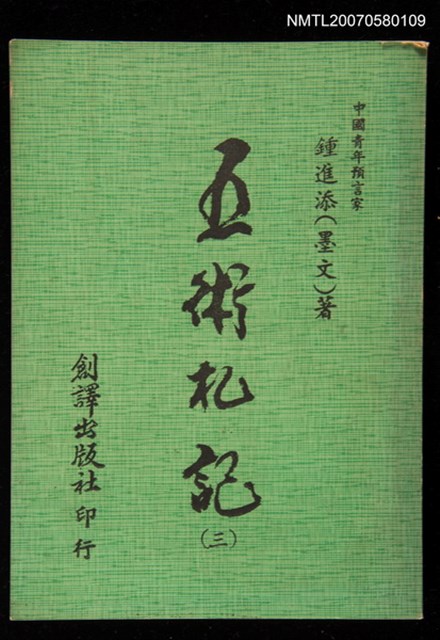 NMTL20070580109
中國青年預言家
鍾進添(墨文)著
五術札記
(三)
創譯出版社印行